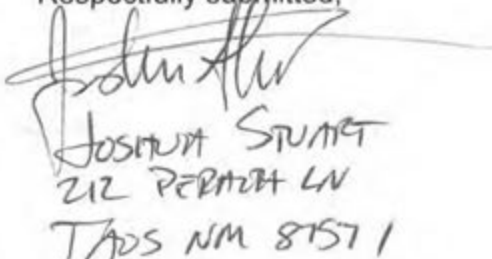 Respectfully submitted,
JOSHUA STUART
212 LN
TAOS NM 87571